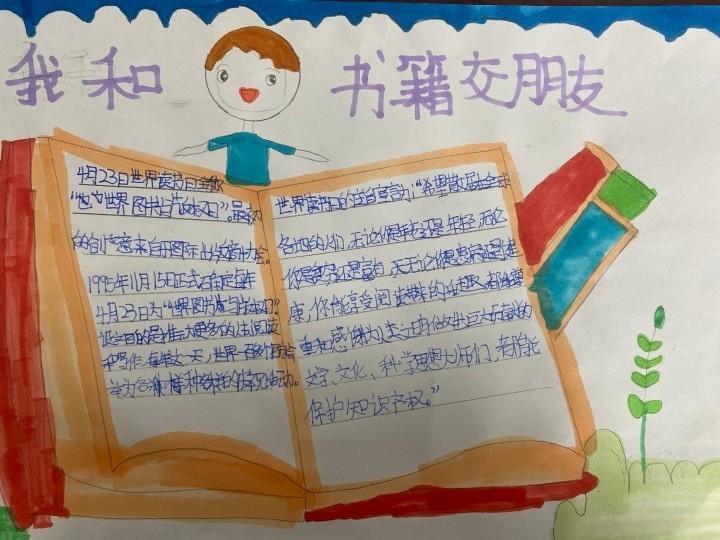 我和 书籍交朋友
4月23日世界读书日全称
"世界图书与版权日"。最初
的创意来自于国际出版者大会。
1995年11月15日正式确定每年
4月23日为"世界图书与版权日"
设立目的是推动更多的人去阅读
和写作,每年这一天,世界一百多个国家
举办各种各样的庆祝活动。
世界读书日的主旨宣言为:"希望散居在全球
各地的人们,无论你是年老还是年轻,无论
你是贫穷还是富有,无论你是患病还是健
康,你能享受阅读带来的乐趣,都能尊
重和感谢为人类文明做出巨大贡献的
文学、文化、科学思想大师们,都能
保护知识产权。"